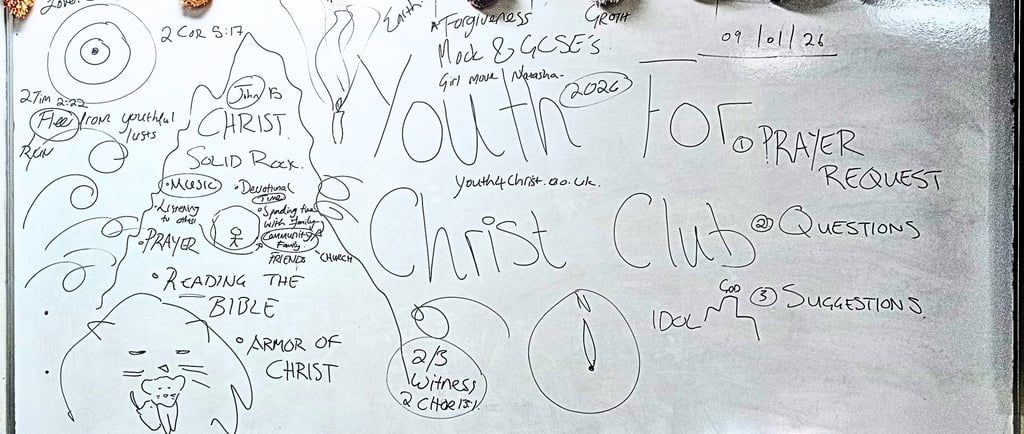 Love.
2 COR 5:17
2 Tim 2:22
Flee from youthful
lusts
RUN
John 15
CHRIST.
SOLID ROCK.
• MUSIC
• Listening
to other
• PRAYER
• Devotional
Time
• Spending time
with family
Community
Family
FRIENDS
CHURCH
• READING THE
BIBLE
• ARMOR OF
CHRIST
Earth
Forgiveness
GROTH
Mock & GCSE's.
Girl move / Natasha-
09/01/26
Youth For
2026
Christ Club
youth4christ.co.uk.
① PRAYER
REQUEST
② QUESTIONS
③ SUGGESTIONS.
GOD
IDOL
N
2/3
Witness